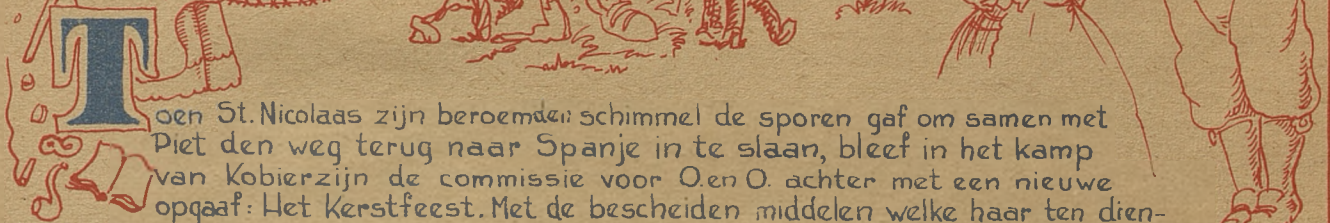 Toen St. Nicolaas zijn beroemden schimmel de sporen gaf om samen met
Piet den weg terug naar Spanje in te slaan, bleef in het kamp
van Kobierzijn de commissie voor O. en O. achter met een nieuwe
opgaaf: Het Kerstfeest. Met de bescheiden middelen welke haar ten dien-